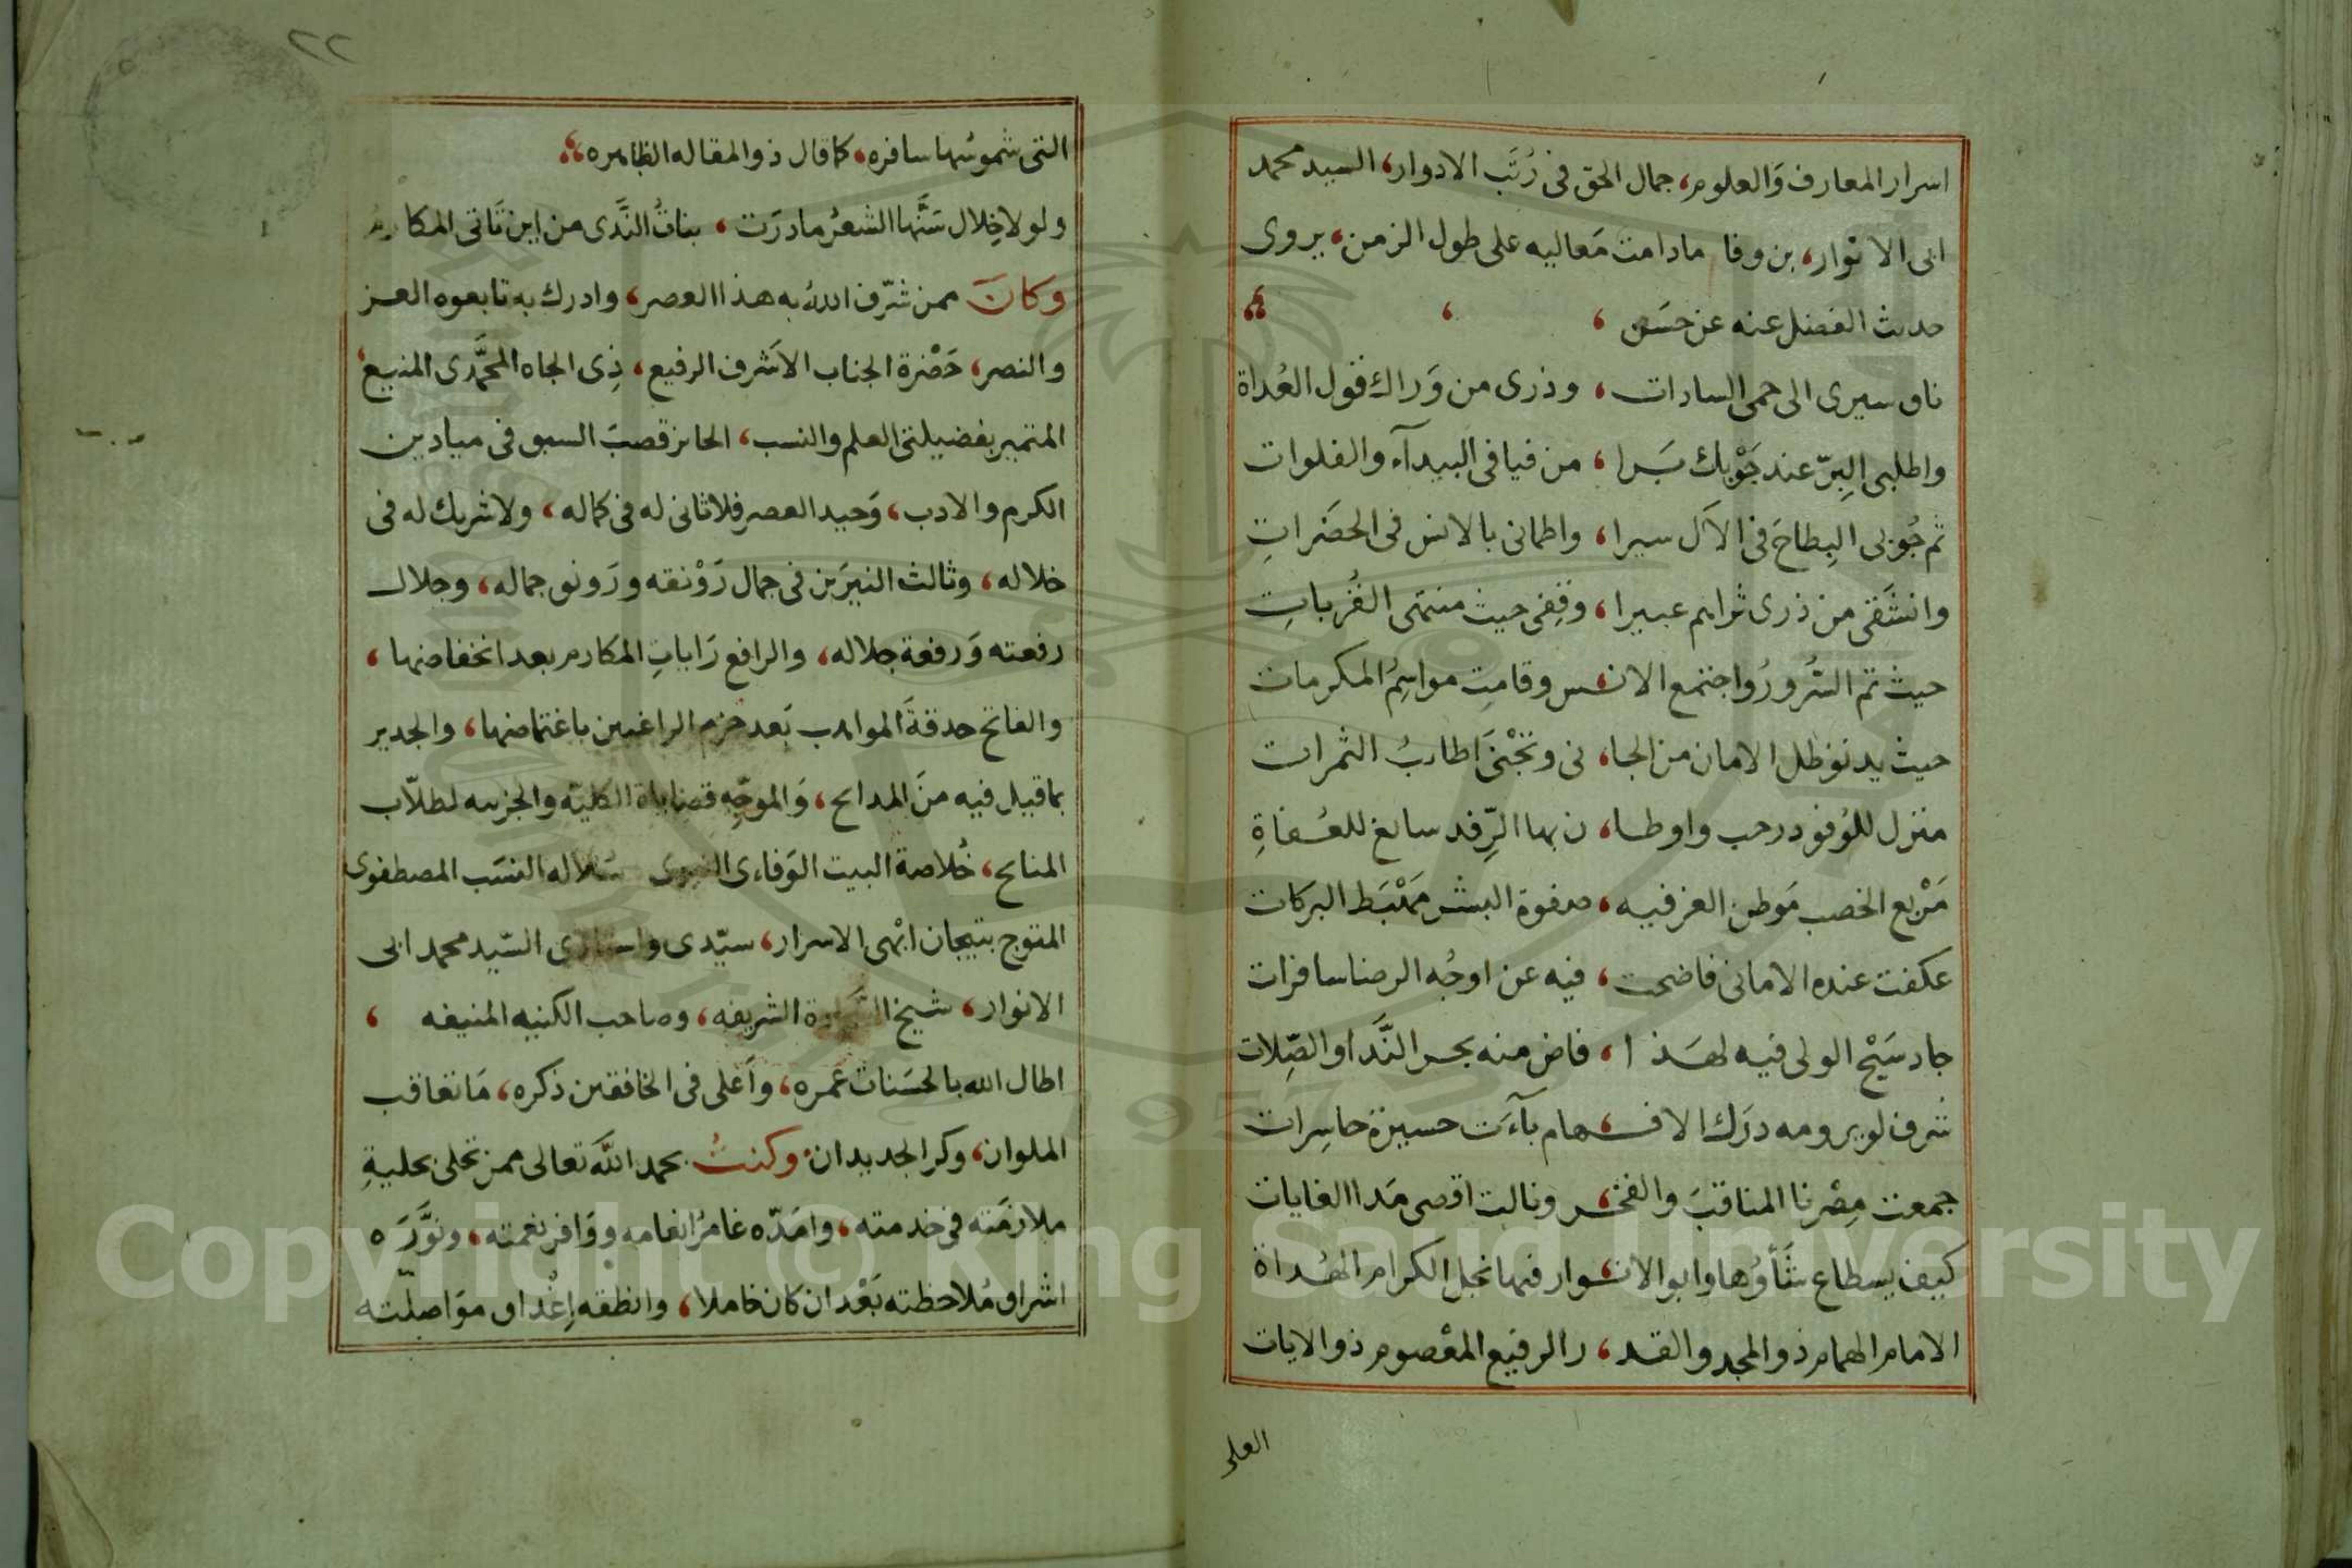 اسرار المعارف وَالعلوم، جمال الحق فى رُتَب الادوار، السيد محمد
ابى الانوار، بن وفا مادامت مَعاليه على طول الزمن، يروى
حديث الفضل عنه عن حَسَن ،
ناق سيرى الى حمى السادات ، وذرى من وَراك قول العُداة
واطلبى البِرّ عند جَوْبك بَرا ، من فيافى البيدآء والفلوات
ثم جُوبى البِطاحَ فى الآل سيرا ، واطمانى بالانس فى الحضَراتِ
وانشَقى من ذرى ثراهم عبيرا ، وقِفى حيث منتهى القُرباتِ
حيث تم السُّرورُ واجتمع الانـ،ـس وقامتِ مواسِمُ المكرمات
حيث يدنو ظل الامان من الجا، نى وتجْنىَ اطايبُ الثمرات
منزل للوُفود رحب واوطـا، ن بها الرِّفد سائغ للعُـفاةِ
مَرْبع الخصب مَوطن العز فيـه ، صفوة البشر مَهْبَط البركات
عكفت عنده الامانى فاضحت ، فيه عن اوجُه الرضا سافرات
جاد سَيْح الولى فيه لهـَذ ا ، فاض منه بحر النَّدا والصِّلات
شرف لو يرومه درَك الافـ،ـهام بآءَت حسيرة حاسِرات
جمعت مِصْرنا المناقبَ والفخـ،ـر ونالت اقصى مَدا الغايات
كيف يسطاع شَأوُها وابو الانـ،ـوار فيها نجل الكرام الهُداة
الامام الهمام ذو المجد والقـد ، ر الرفيع المعْصوم ذو الايات
العلى
٢٢
التى شموسُها سافره، كما قال ذو المقاله الظاهره
ولولا خِلال سَنَّها الشعرُ مادرَت ، بناتُ النَّدى من اين تَاتى المكارمُ
وكانَ ممن شرّف اللهُ به هذا العصر، وادرك به تابعوه العز
والنصر، حَضْرة الجناب الاشرف الرفيع، ذِى الجاه المحَمَّدى المنيع،
المتميز بفضيلتى العلم والنسب، الحائز قصبَ السبق فى ميادين
الكرم والادب، وَحيد العصر فلا ثانى له فى كماله، ولا شريك له فى
خلاله، وثالث النيرَين فى جمال رَوْنقه ورَونق جماله، وجلال
رفعته وَرفعة جلاله، والرافع رَاياتِ المكارم بعد انخفاضها ،
والفاتح حدقةَ المواهب بَعد جزم الراغبين باغتماضها، والجدير
بما قيل فيه منَ المدائح، وَالموجّه قضاياه الكليّه والجزئيه لطلاّب
المنائح، خُلاصة البيت الوَفاءى سُلاله النسَب المصطفوى
المتوج بتيجان ابْهى الاسرار، سيّدى واستاذى السّيد محمد ابى
الانوار، شيخ السَّجادة الشريفه، وصاحب الكنيه المنيفه ،
اطال الله بالحسَنات عمره، وأعلى فى الخافقين ذكره، مَا تعاقب
الملوان، وكر الجديدان، وكنتُ بحمد اللّه تعالى ممن تحلى بحليةِ
ملازمَته فى خدمته، وامَدّه غامرُ انعامه ووَافر نعمته، ونوَّرَه
اشراق مُلاحظته بَعْد ان كان خاملا، وانطقه إغْداق موَاصلته